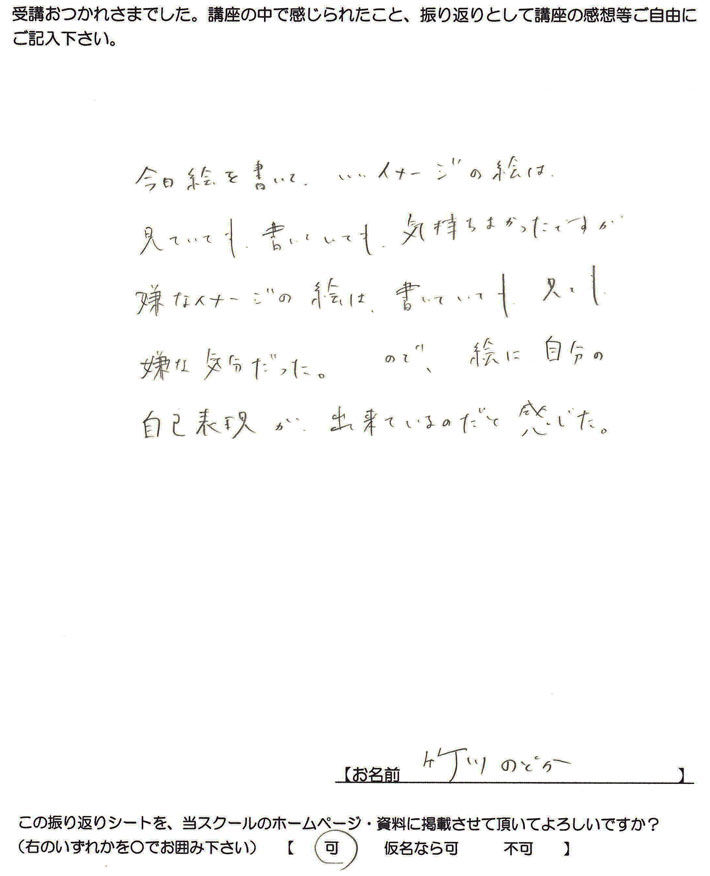 受講おつかれさまでした。講座の中で感じられたこと、振り返りとして講座の感想等ご自由に
ご記入下さい。
今日絵を書いて、いいイメージの絵は、
見ていても、書いていても、気持ちよかったですが
嫌なイメージの絵は、書いていても、見ても、
嫌な気分だった。ので、絵に自分の
自己表現が、出来ているのだと感じた。
【お名前 竹川 のどか 】
この振り返りシートを、当スクールのホームページ・資料に掲載させて頂いてよろしいですか？
（右のいずれかを〇でお囲み下さい） 【 可 仮名なら可 不可 】